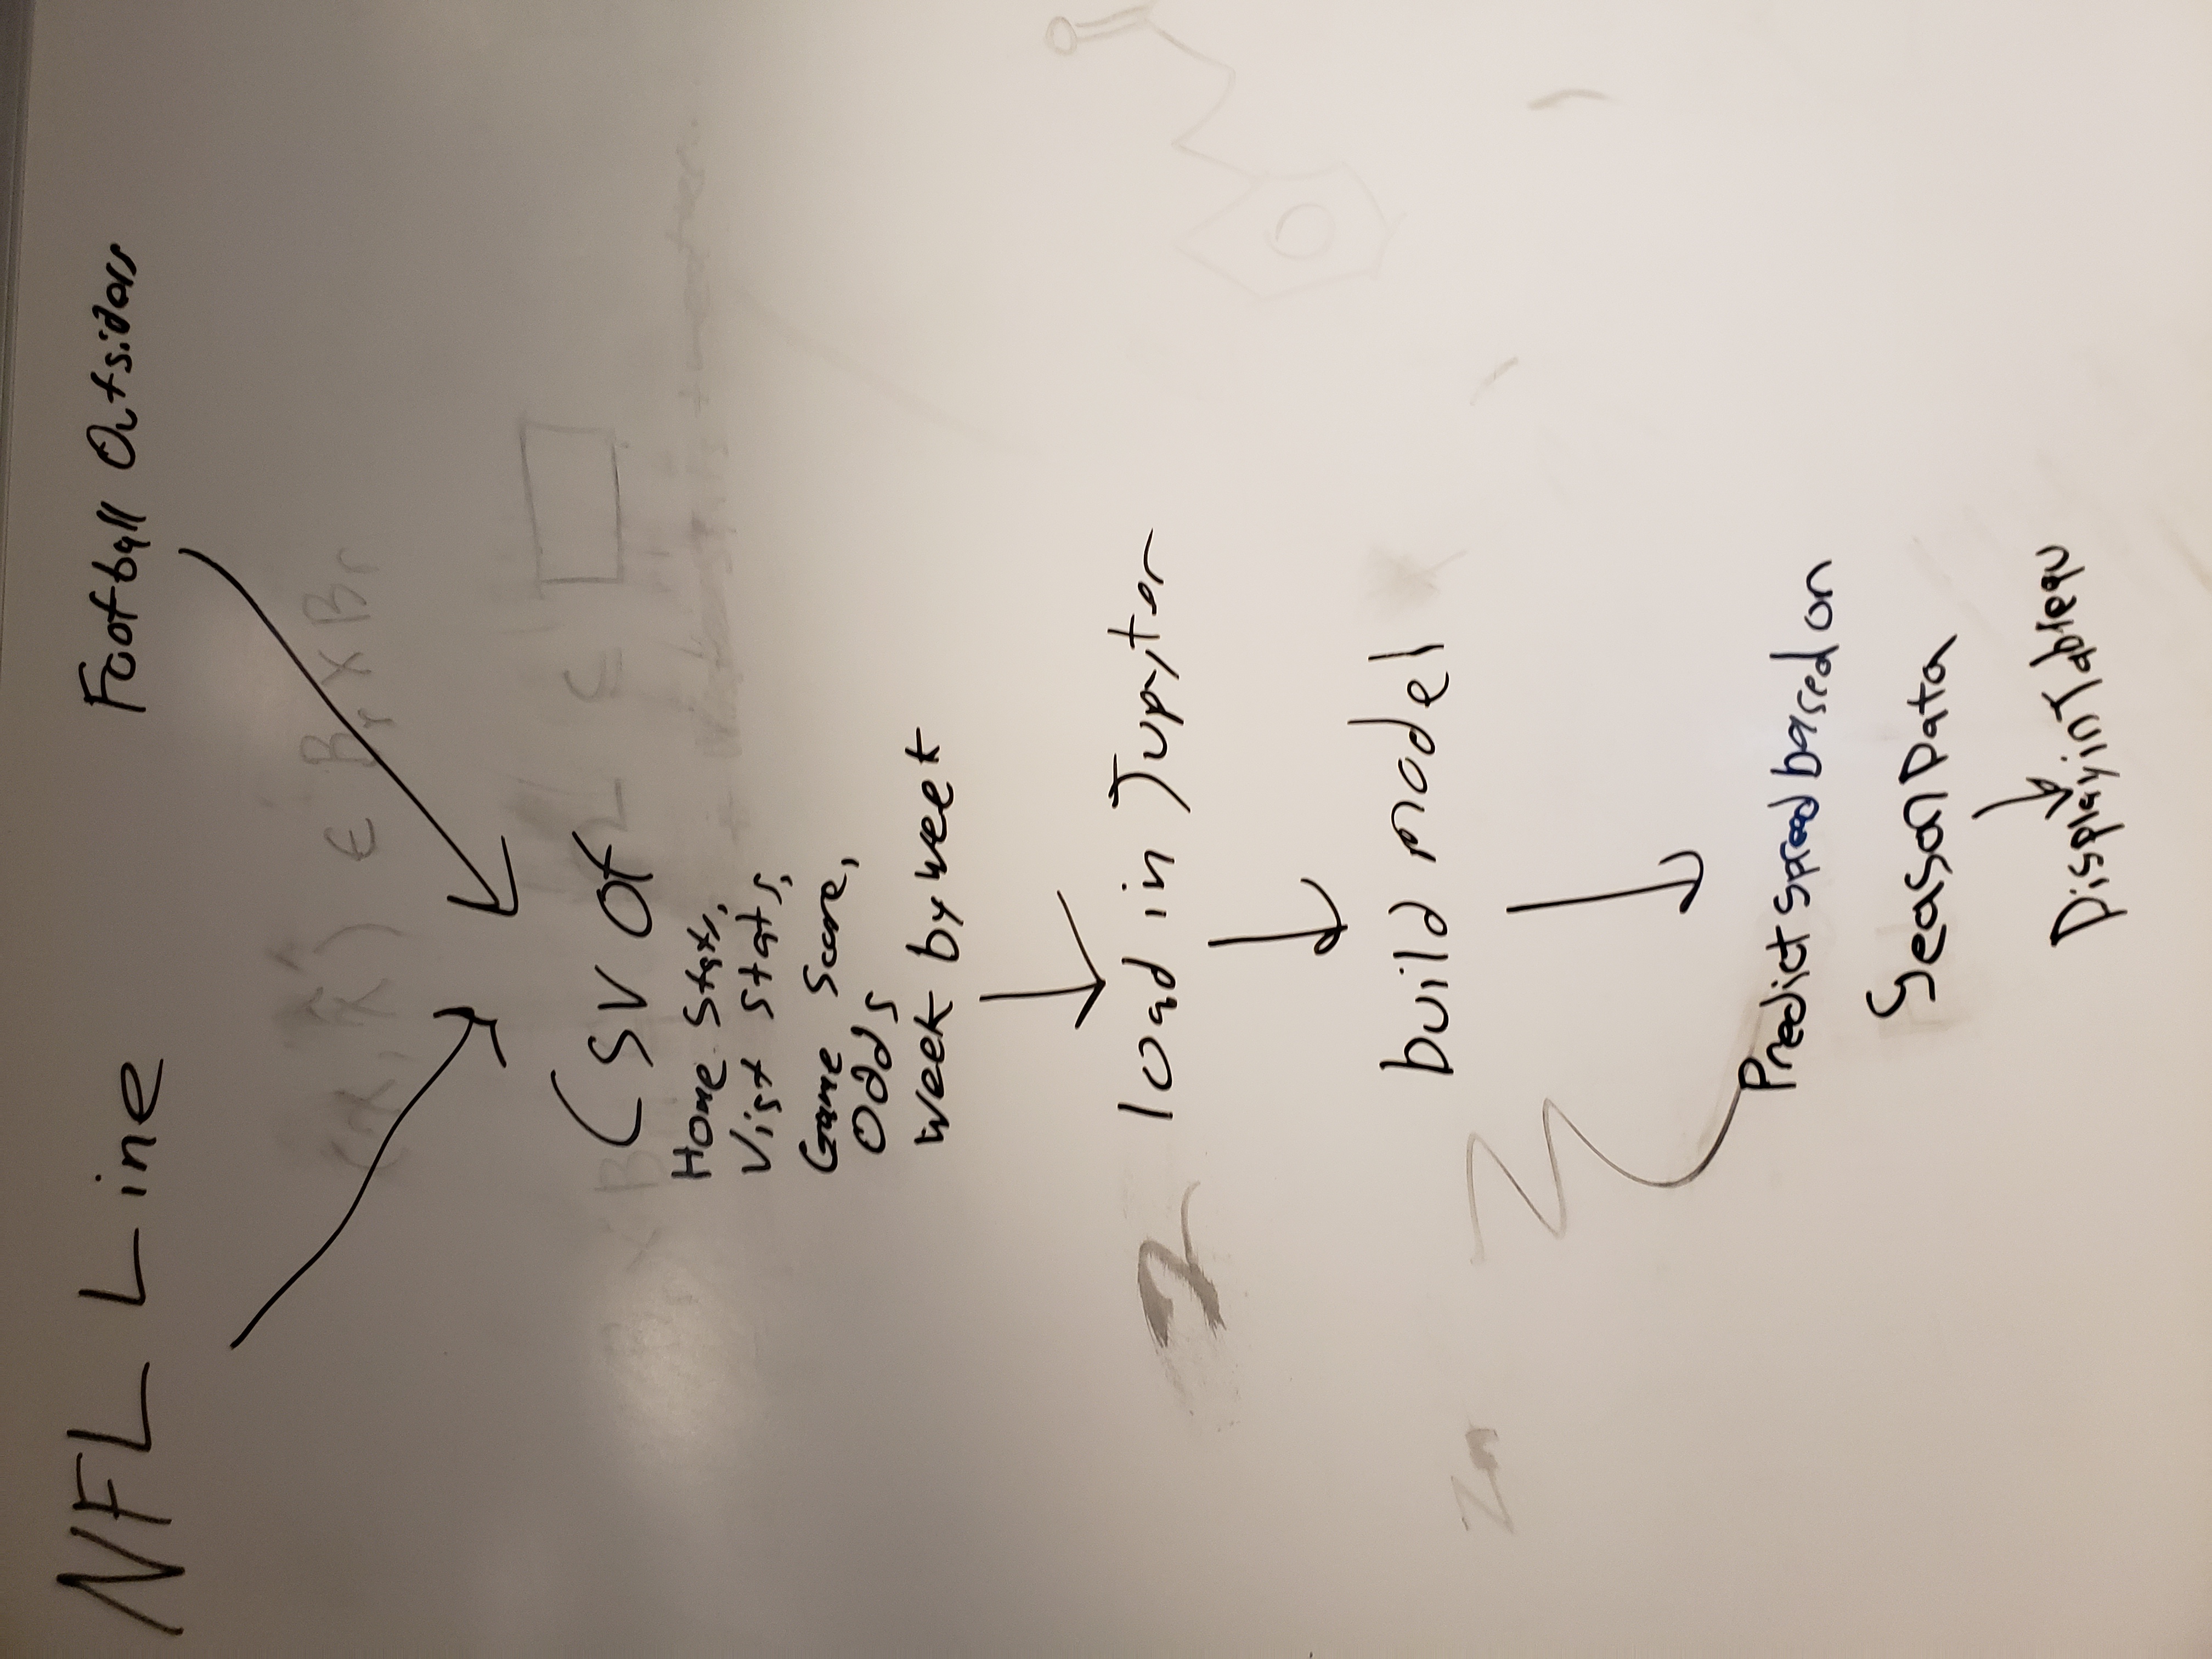 NFL Line
Football Outsiders
(x, x̂) ∈ Br X Br
Csv of
Home Stats,
Vist Stats,
Game Score,
Odds
Week by week
load in Jupyter
build model
Zn
Predict spread based on
Season Data
Display in Tableau